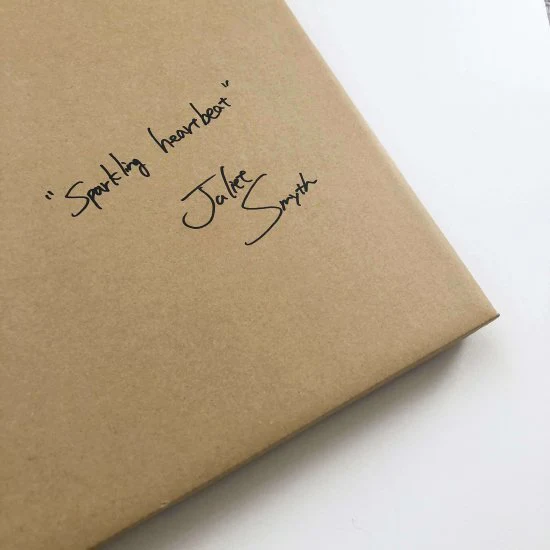 "Sparkling heartbeat"
Jaliee
Smyth